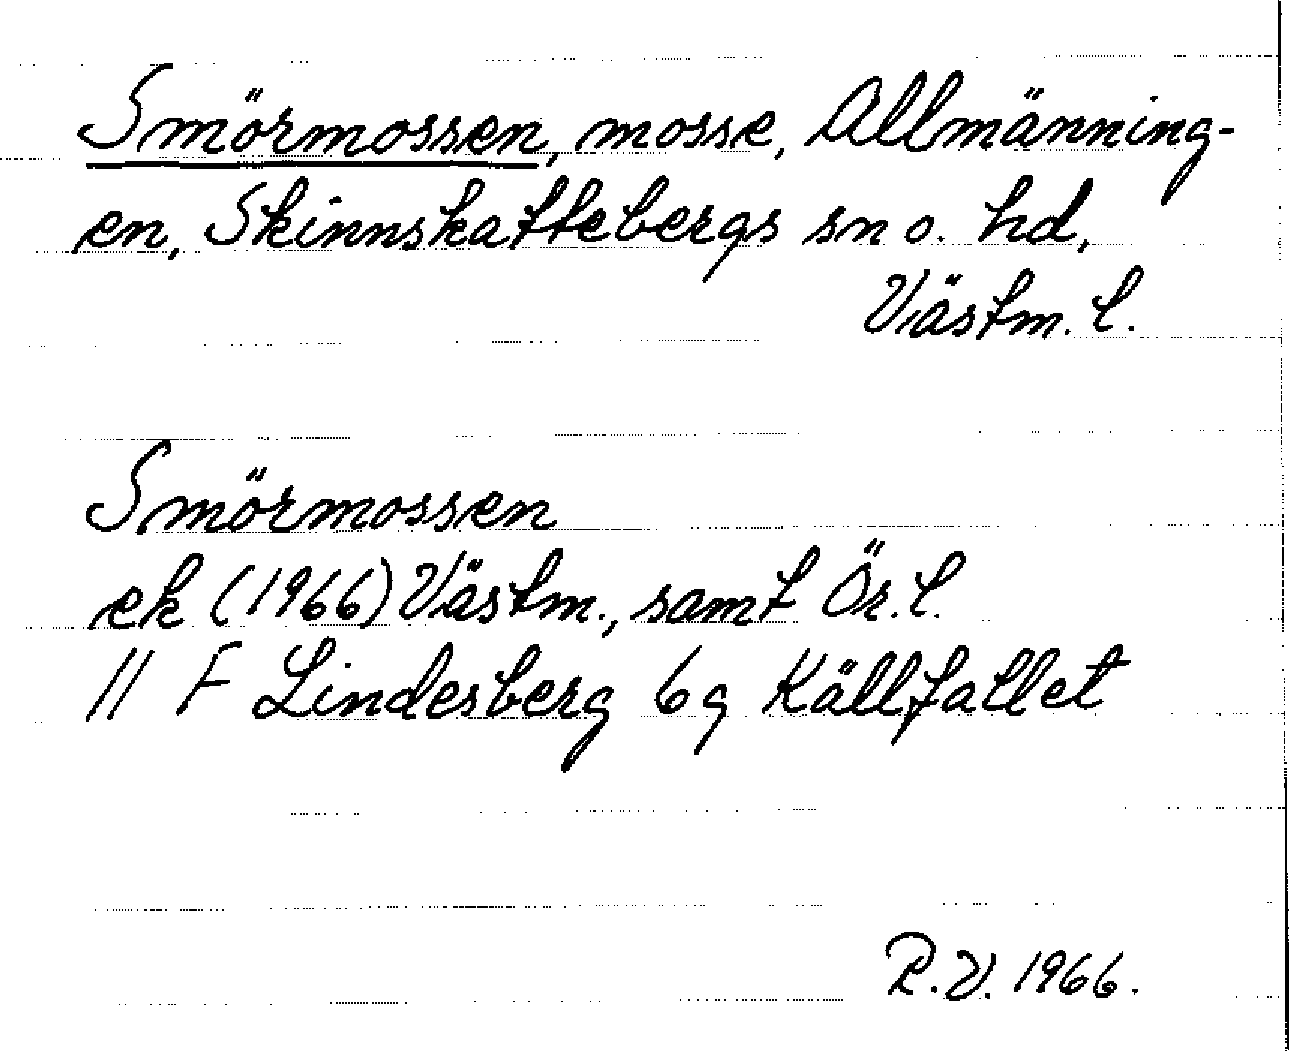 Smörmossen, mosse, Allmänning-
en, Skinnskattebergs sn o. hd,
Västm. l.
Smörmossen
ek (1966) Västm., samt Ör. l.
11 F Lindesberg 6 g Källfallet
R.V. 1966.